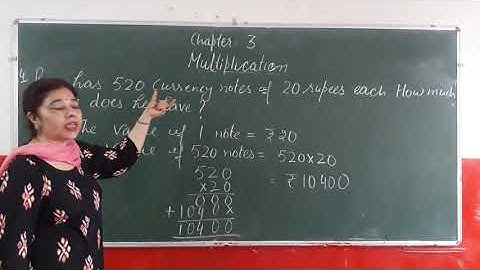 Chapter 3
Multiplication
has 520 currency notes of 20 rupees each How much
does he have ?
The value of 1 note = ₹20
of 520 notes = 520×20
520
×20
= ₹10400
000
+1040×
10400